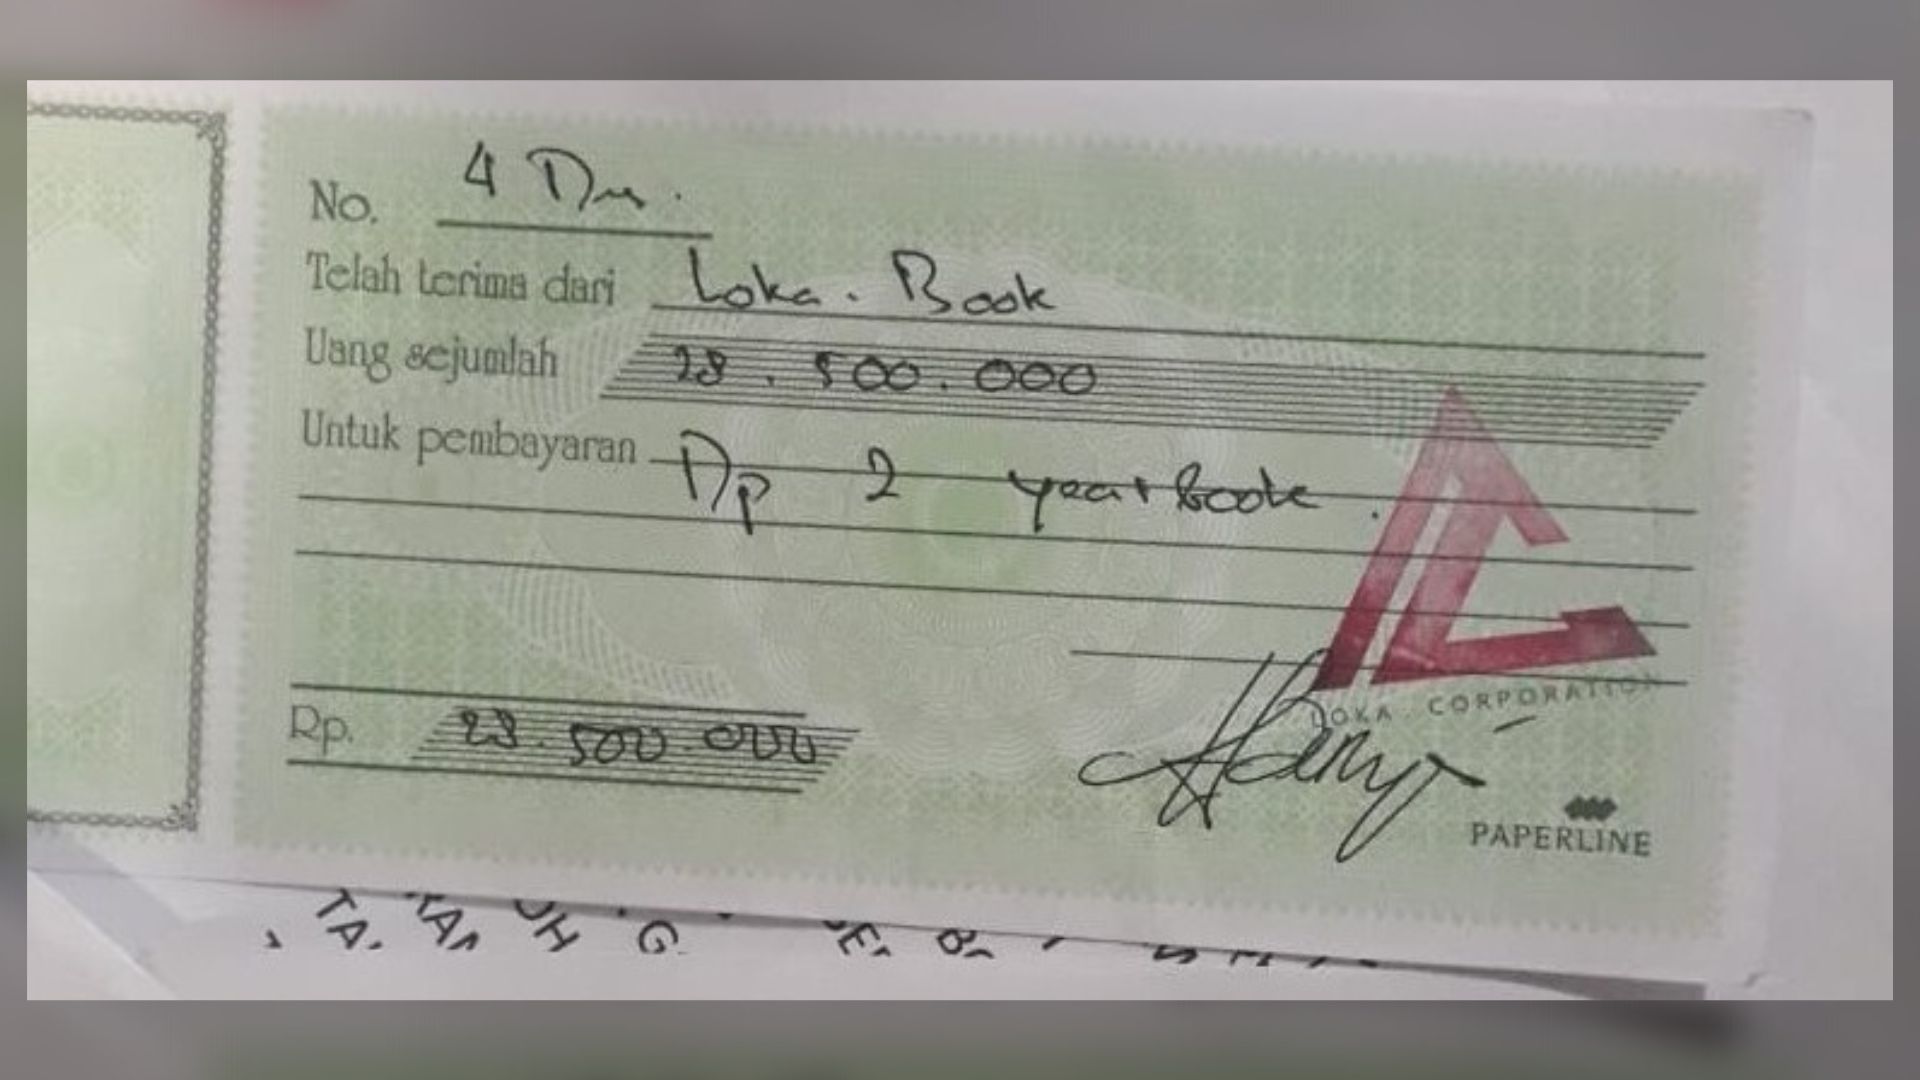 No. 4 Des.
Telah terima dari Loka. Book
Uang sejumlah 28.500.000
Untuk pembayaran Dp 2 yearbook.
Rp. 28.500.000
LOKA CORPORATION
PAPERLINE